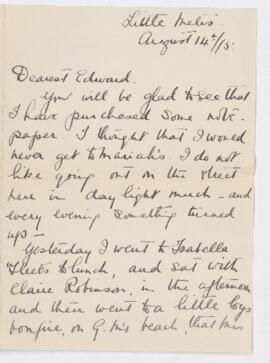 Little Metis.
August 14th/15.
Dearest Edward.
You will be glad to see that
I have purchased some note-
paper. I thought that I would
never get to Mariah's. I do not
like going out on the street
here in day light much - and
every evening something turned
up -
Yesterday I went to Isabella
to lunch, and sat with
Claire Robinson, in the afternoon
and then went to a little boys
bonfire, on G. M's beach, that Mrs